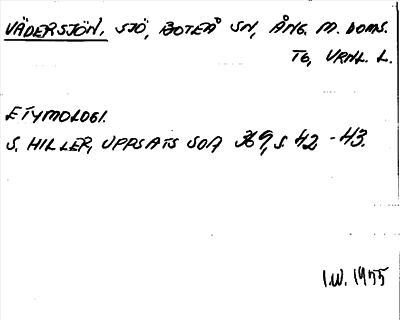 VÄDERSJÖN, SJÖ, BOTEÅ SN, ÅNG. M. DOMS.
TG, VRNL. L.
ETYMOLOGI.
S. HILLER, UPPSATS SOA 369, S. 42 - 43.
I.W. 1955